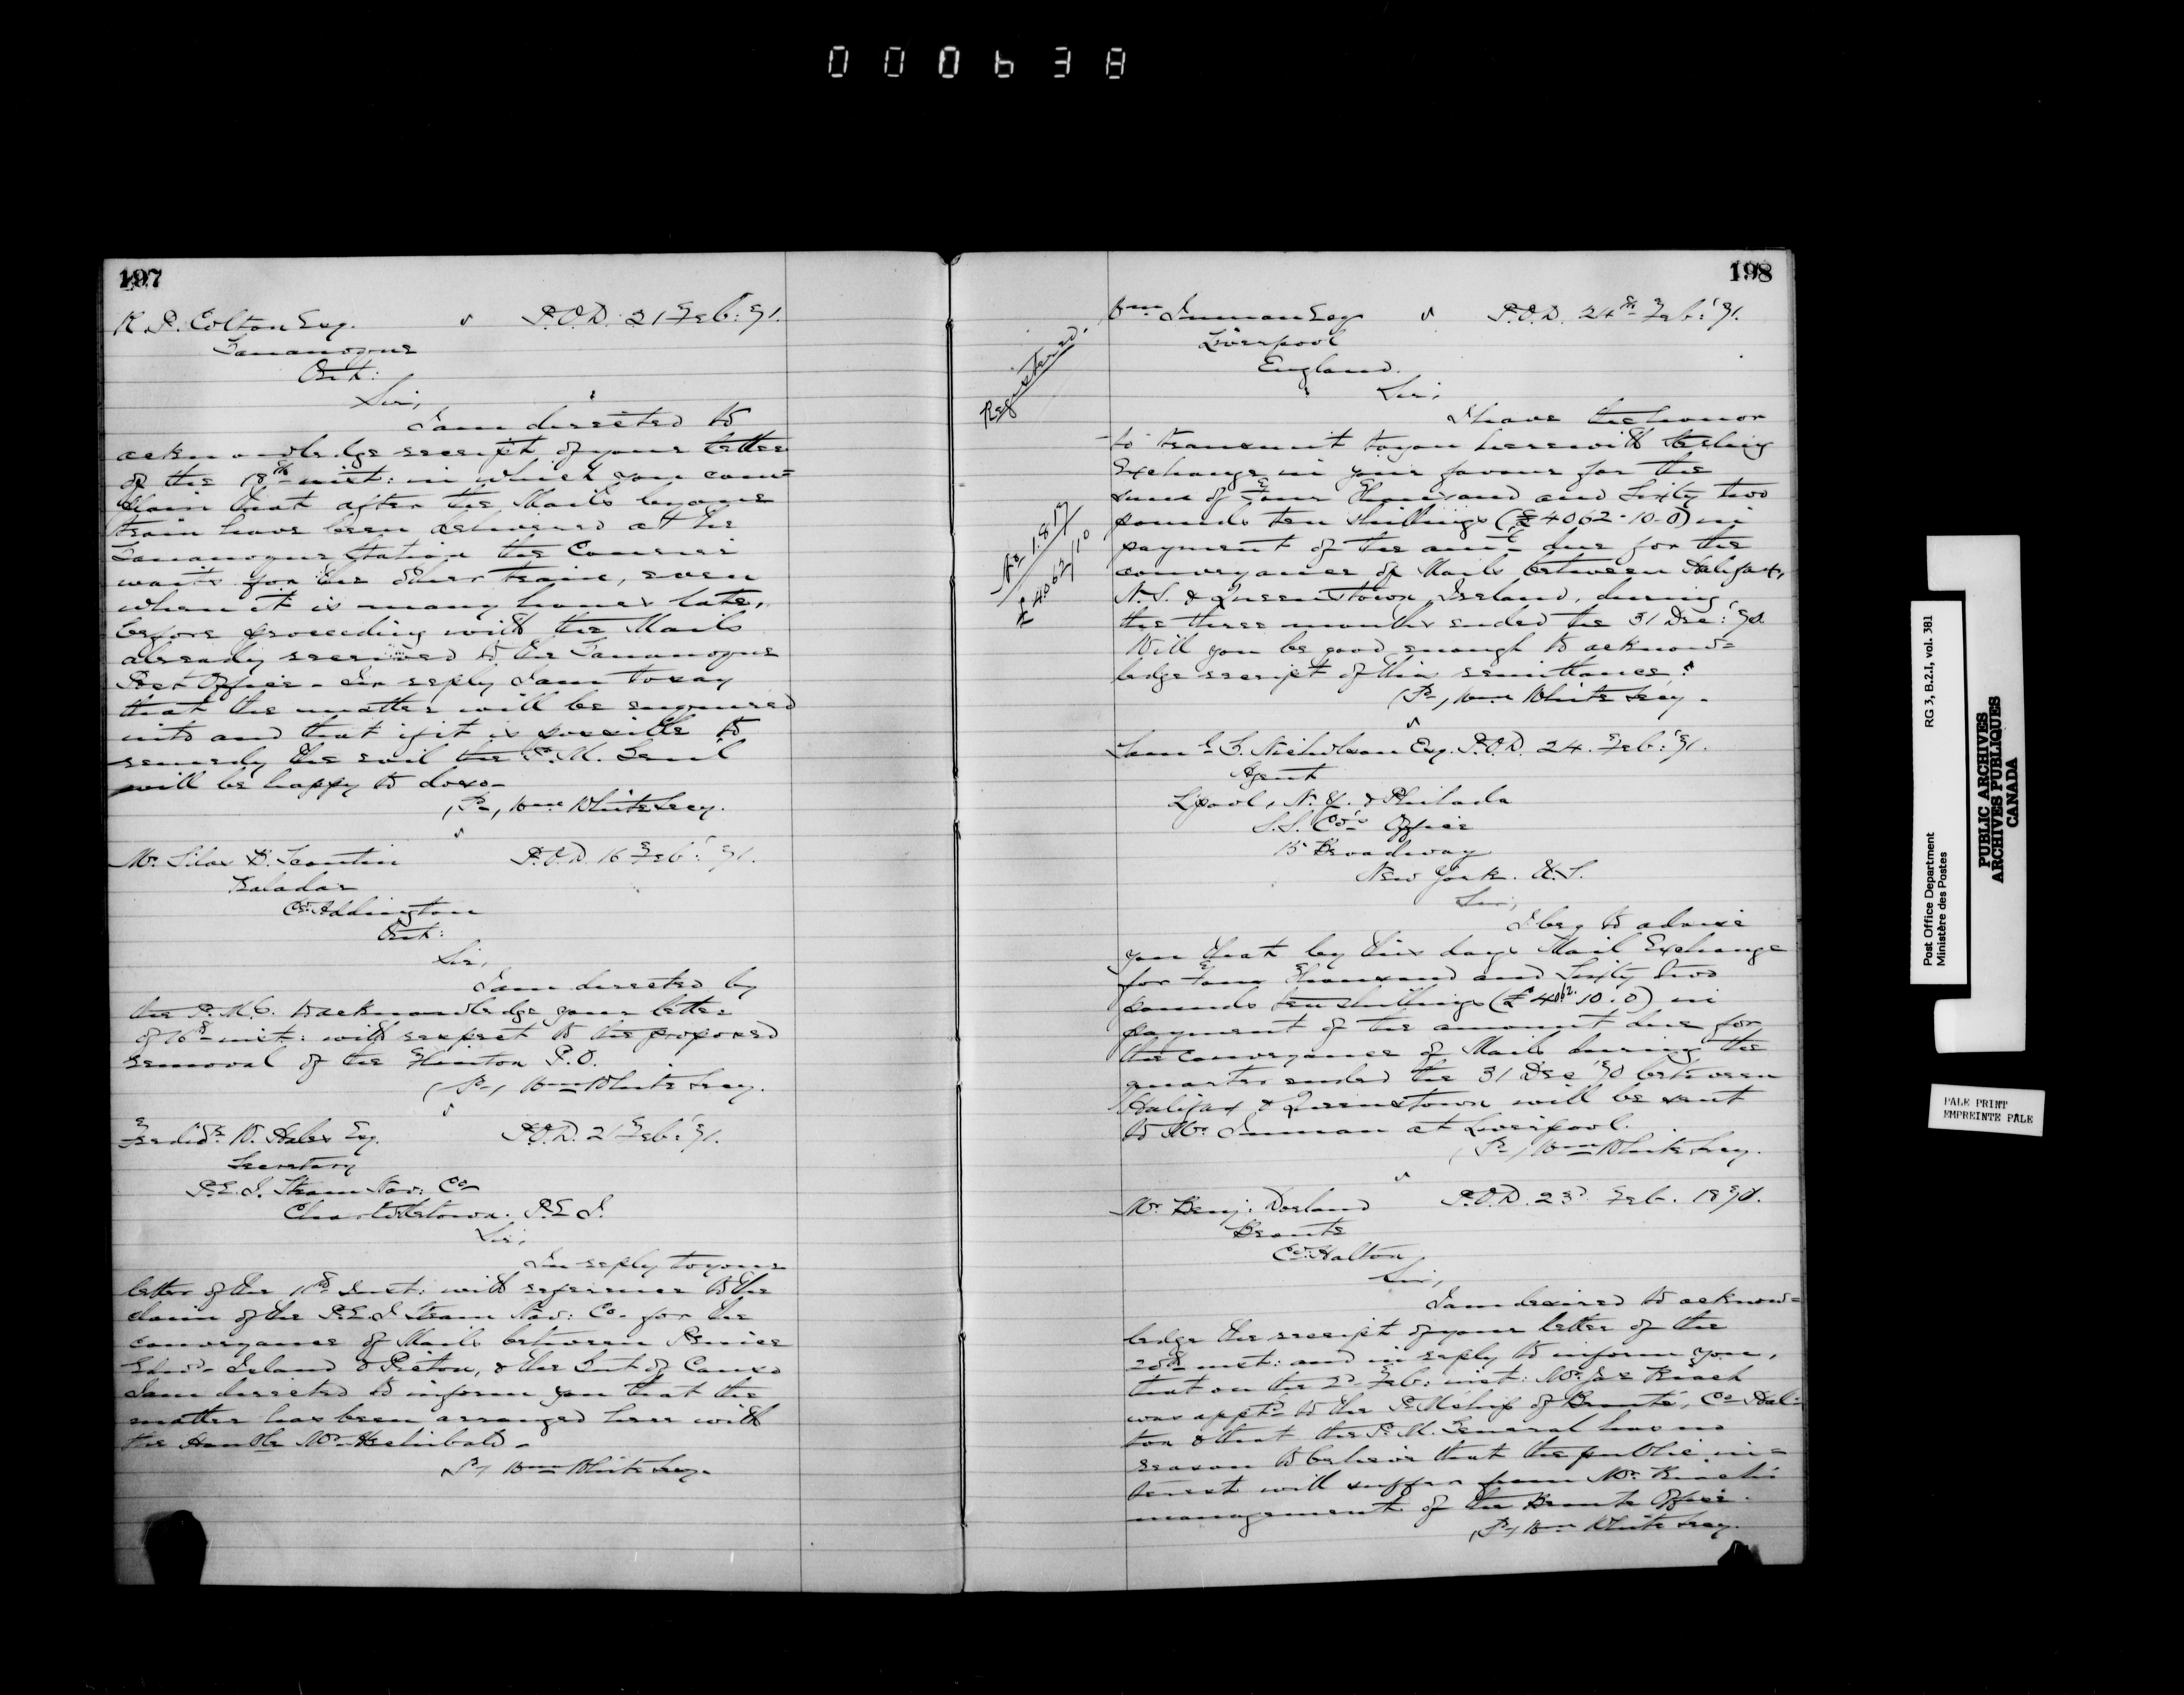 000638
197
R. P. Colton Esq. P.O.D. 21 Feb: 71.
Gananoque
Ont:
Sir,
I am directed to
acknowledge receipt of your letter
of the 18th inst: in which you com=
plain that after the Mails by one
train have been delivered at the
Gananoque Station the Courier
waits for the other train, even
when it is many hours late,
before proceeding with the Mails
already received to the Gananoque
Post Office - In reply I am to say
that the matter will be enquired
into and that if it is possible to
remedy the evil the P. M. Genl
will be happy to do so -
Wm White Secy.
Mr. Silas D. P.O.D. 16 Feb: '71.
Kaladar
Co. Addington
Ont:
Sir,
I am directed by
the P.M.G. to acknowledge your letter
of 16th inst: with respect to the proposed
removal of the Flinton P.O.
Wm White Secy.
Fredk. W. Hales Esq. P.O.D. 21 Feb: '71.
Secretary
P.E.I. Steam Nav: Co
Charlottetown. P.E.I.
Sir,
In reply to your
letter of the 11th Inst: with reference to the
claim of the P.E.I. Steam Nav: Co. for the
conveyance of Mails between Prince
Edwd. Island & Pictou, & the Gut of Canso
I am directed to inform you that the
matter has been arranged here with
the Honble Mr. Archibald -
Wm White Secy.
198
Wm Inman Esq P.O.D. 24th Feb: '71.
Liverpool
England.
Sir,
Registered.
I have the honor
to transmit to you herewith Sterling
Exchange in your favour for the
sum of Four Thousand and Sixty two
pounds ten shillings (£4062-10-0) in
No 1.817
£4062/10
payment of the amt. due for the
conveyance of Mails between Halifax,
N.S. & Queenstown, Ireland, during
the three months ended the 31 Dec: '70
Will you be good enough to acknow=
ledge receipt of this remittance?
Wm White Secy.
Saml G. Nicholson Esq. P.O.D. 24. Feb: '71.
Agent
Lpool, N.Y. & Philada
S.S. Co's Office
15 Broadway
New York. U.S.
Sir,
I beg to advise
you that by this day's Mail Exchange
for Four Thousand and Sixty two
pounds ten shillings (£4062.10.0) in
payment of the amount due for
the conveyance of Mails during the
quarter ended the 31 Dec '70 between
Halifax & Queenstown will be sent
to Mr Inman at Liverpool.
Wm White Secy.
Mr. Benj: Dorland P.O.D. 23d Feb. 1870.
Bronte
Co. Halton
Sir,
I am desired to acknow=
ledge the receipt of your letter of the
20th inst: and in reply to inform you,
that on the 2d Feb: inst: Mr.
was apptd. to the P. M'ship of Bronte, Co Hal=
ton & that the P. M. General has no
reason to believe that the public in=
terest will suffer from Mr.
management of the Bronte Office.
Wm White Secy.
Post Office Department
Ministère des Postes
RG 3, B.2.I, vol. 381
PUBLIC ARCHIVES
ARCHIVES PUBLIQUES
CANADA
PALE PRINT
EMPREINTE PALE